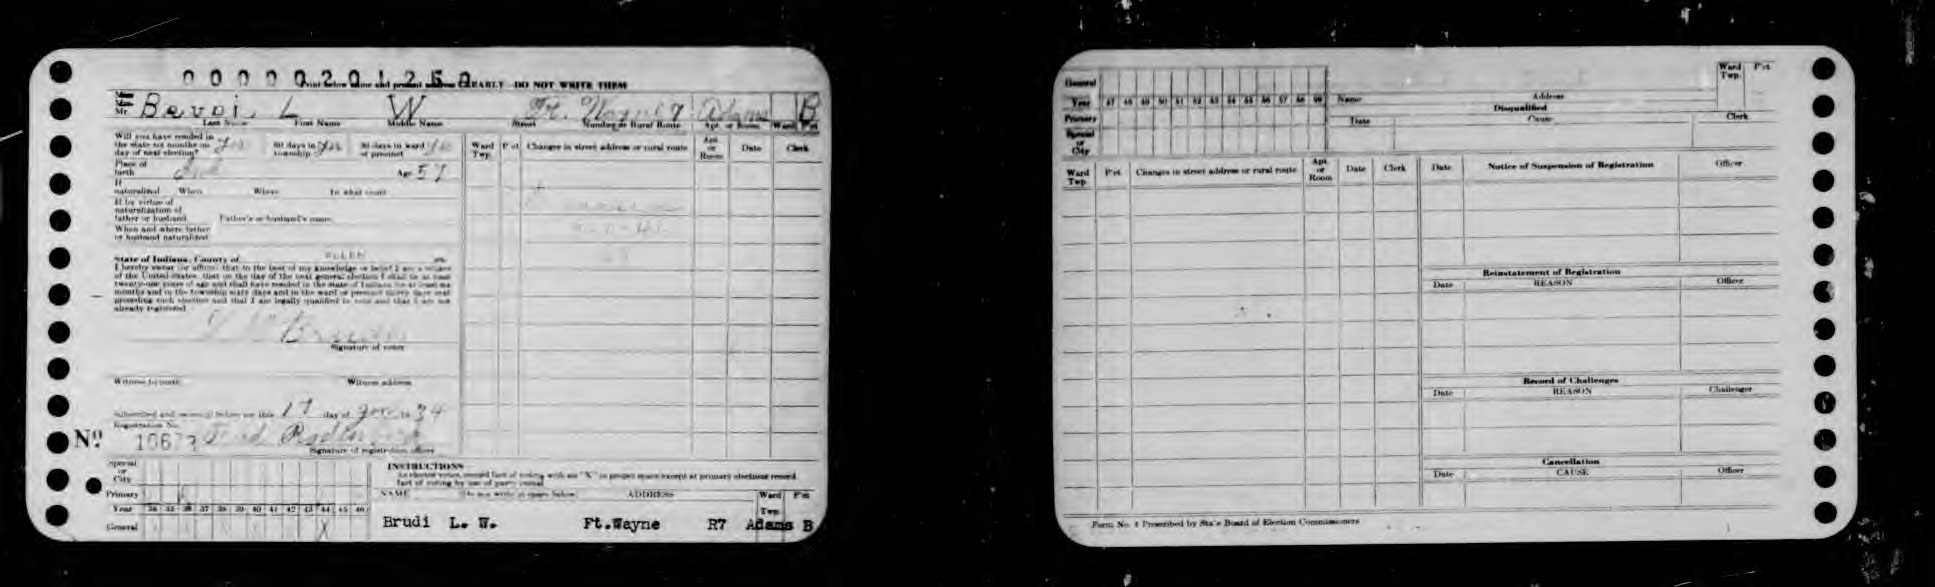 0000020125
Print below name and present address CLEARLY DO NOT WRITE THEM
Miss
Mrs.
Mr. Bruoi, L W Ft. Wayne 7 Adams B
Last Name First Name Middle Name Street Number or Rural Route Apt. or Room Ward P'ct
Will you have resided in
the state six months on yes 60 days in yes 30 days in ward yes
day of next election? township or precinct
Place of
birth Ind Age 57
If
naturalized When Where In what court
If by virtue of
naturalization of
father or husband Father's or husband's name
When and where father
or husband naturalized
State of Indiana, County of ALLEN ss.
I hereby swear (or affirm) that to the best of my knowledge or belief I am a citizen
of the United States, that on the day of the next general election I shall be at least
twenty-one years of age and shall have resided in the state of Indiana for at least six
months and in the township sixty days and in the ward or precinct thirty days next
preceding such election and that I am legally qualified to vote and that I am not
already registered
Signature of voter
Witness to mark Witness address
Subscribed and sworn to before me this 17 day of 34
Registration No.
No 10673 Fred
Signature of registration officer
Ward
Twp. P'ct Changes in street address or rural route Apt. or Room Date Clerk
Special
or
City
Primary
Year 34 35 36 37 38 39 40 41 42 43 44 45 46
General X
INSTRUCTIONS
As elector votes, record fact of voting with an "X" in proper space except at primary elections record
fact of voting by use of party initial
NAME (Do not write in space below) ADDRESS Ward Twp. P'ct
Brudi L. W. Ft.Wayne R7 Adams B
General
Year 47 48 49 50 51 52 53 54 55 56 57 58 59
Primary
Special
or
City
Name Address Ward Twp. P'ct
Disqualified
Date Cause Clerk
Ward
Twp P'ct Changes in street address or rural route Apt. or Room Date Clerk
Date Notice of Suspension of Registration Officer
Reinstatement of Registration
Date REASON Officer
Record of Challenges
Date REASON Challenger
Cancellation
Date CAUSE Officer
Form No. 1 Prescribed by State Board of Election Commissioners